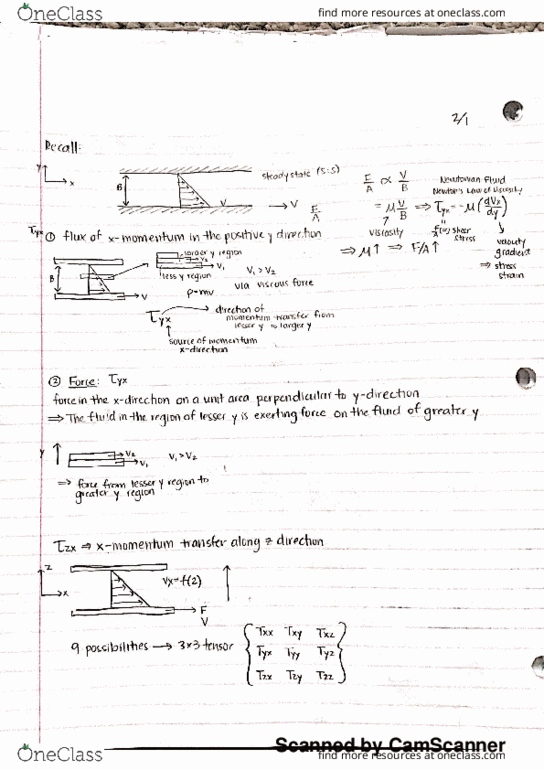 OneClass
find more resources at oneclass.com
2/1
Recall:
y
x
B
V
steady state (S.S)
→ V
F/A
F/A ∝ V/B
= μ V/B ⇒ τyx = -μ (dVx/dy)
Newtonian Fluid
Newton's Law of Viscosity
viscosity
shear stress
velocity gradient
⇒ stress strain
⇒ μ↑ ⇒ F/A↑
τyx ① flux of x-momentum in the positive y direction
B
V
larger y region
V2
V1
less y region
V1 > V2
p=mv
via viscous force
τyx
direction of momentum transfer from lesser y to larger y
source of momentum
x-direction
② Force: τyx
force in the x-direction on a unit area perpendicular to y-direction
⇒ The fluid in the region of lesser y is exerting force on the fluid of greater y
y
V2
V1
V1 > V2
⇒ force from lesser y region to
greater y region
τzx ⇒ x-momentum transfer along z direction
z
x
Vx=f(z)
F
V
9 possibilities → 3x3 tensor
τxx τxy τxz
τyx τyy τyz
τzx τzy τzz
Scanned by CamScanner
OneClass
find more resources at oneclass.com